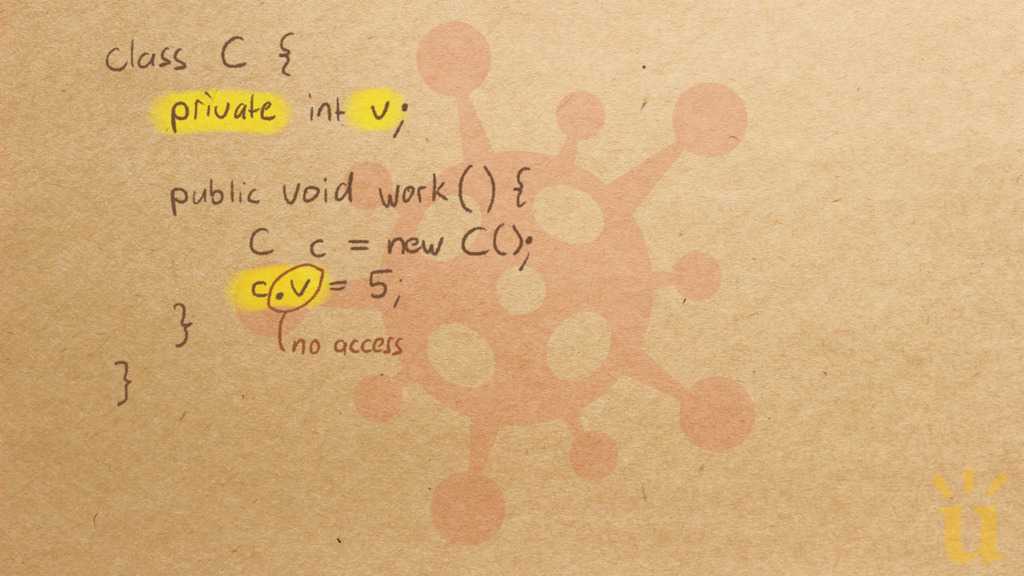 class C {
private int v;
public void work() {
C c = new C();
c.v = 5;
no access
}
}
u